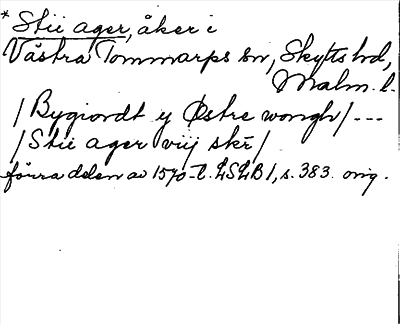 * Stii ager, åker i
Västra Tommarps sn, Skytts hd,
Malm. l.
/Bygiordt y Østre wongh/---
/Stii ager viij skr/
förra delen av 1570-t. LSLB 1, s. 383. orig.